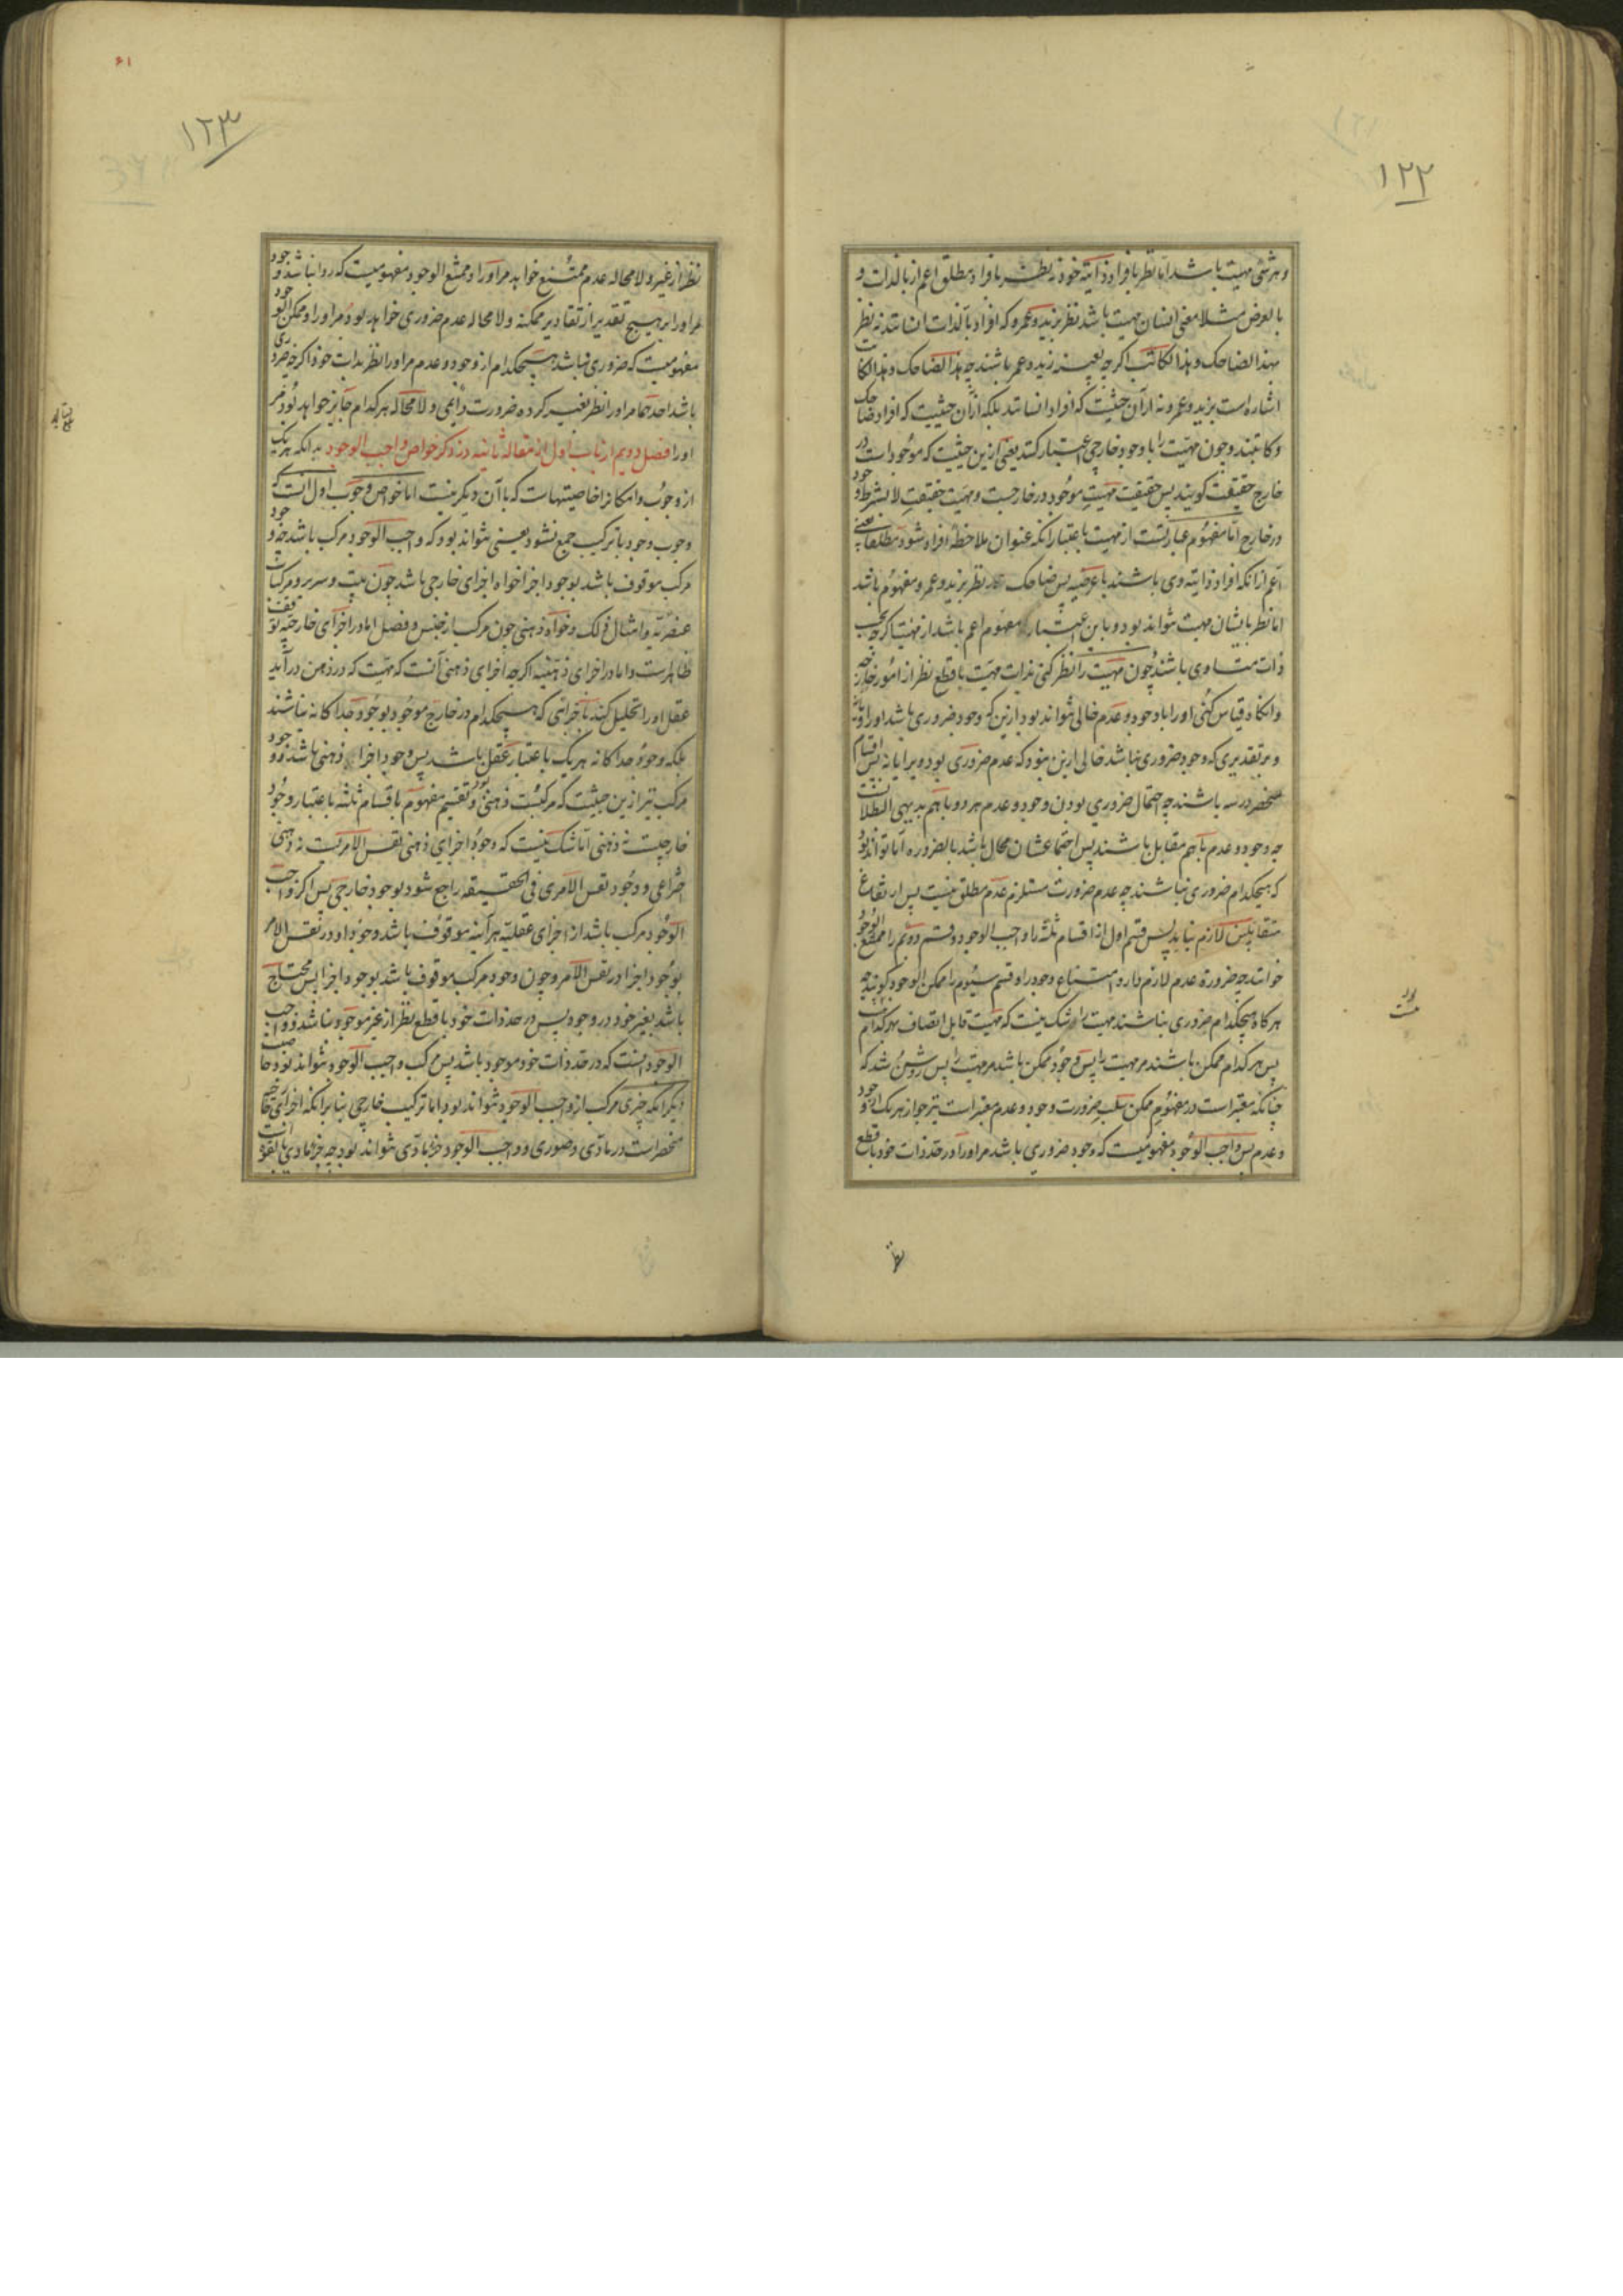 ۱۲۲
و هر شئ مهیت باشد اما نظر بافراد ذاتیه خود نه نظر بافراد مطلق اعم از بالذات و
بالعرض مثلا معنی انسان مهیت باشد نظر بزید و عمرو که افراد بالذات انسانند نه نظر
بهذا الضاحک و هذا الکاتب اگرچه بعینه زید و عمر باشند چه هذا الضاحک و هذا الکاتب
اشاره است بزید و عمرو نه از آن حیثیت که افراد انسانند بلکه از آن حیثیت که افراد ضاحک
و کاتبند و چون مهیت را با وجود خارجی اعتبار کنند یعنی ازین حیثیت که موجود است در
خارج حقیقت گویند پس حقیقت مهیت موجود در خارجست و مهیت حقیقت لا بشرط وجود
در خارج اما مفهوم عبارتست از مهیت باعتبار انکه عنوان ملاحظهٔ افراد شود مطلقا یعنی
اعم از انکه افراد ذاتیه وی باشند یا عرضیه پس ضاحک نظر بزید و عمرو مفهوم باشد
اما نظر بایشان مهیت نتواند بود و باین اعتبار مفهوم اعم باشد از مهیت اگرچه بحسب
ذات متساوی باشند چون مهیت را نظر کنی بذات مهیت با قطع نظر از امور خارجه
و انگاه قیاس کنی او را با وجود و عدم خالی نتواند بود ازین که وجود ضروری باشد او را و یا نه
و بر تقدیری که وجود ضروری نباشد خالی ازین نبود که عدم ضروری بود ویرا یا نه پس اقسام
منحصر در سه باشند چه احتمال ضروری بودن وجود و عدم هر دو باهم بدیهی البطلانست
چه وجود و عدم باهم مقابل باشند پس اجتماعشان محال باشد بالضروره اما تواند بود
که هیچکدام ضروری نباشند چه عدم ضرورت مستلزم عدم مطلق نیست پس ارتفاع
متقابلین لازم نیاید پس قسم اول از اقسام ثلثه را واجب الوجود و قسم دویم را ممتنع الوجود
خوانند چه ضرورة عدم لازم دارد امتناع وجود را و قسم سیوم را ممکن الوجود گویند چه
هرگاه هیچکدام ضروری نباشند مهیت را و شک نیست که مهیت قابل اتصاف بهر کدام است
پس هر کدام ممکن باشند مر مهیت را پس وجود ممکن باشد مر مهیت را پس روشن شد که
چنانکه معتبر است در مفهوم ممکن سلب ضرورت وجود و عدم معتبر است نیز جواز هریک از وجود
و عدم پس واجب الوجود مفهومیست که وجود ضروری باشد مر او را در حد ذات خود با قطع
۱۲۳
نظر از غیر و لا محاله عدم ممتنع خواهد مر او را و ممتنع الوجود مفهومیست که روا نباشد وجود
مر او را بر هیچ تقدیر از تقادیر ممکنه و لا محاله عدم ضروری خواهد بود مر او را و ممکن الوجود
مفهومیست که ضروری نباشد هیچکدام از وجود و عدم مر او را نظر بذات خود اگرچه ضروری
باشد احدهما مر او را نظر بغیر کرده ضرورت دایمی و لا محاله هر کدام جایز خواهد بود مر
او را فصل دویم از باب اول از مقاله ثانیه در ذکر خواص واجب الوجود بدانکه هر یک
از وجوب و امکان را خاصیتهاست که با آن دیگر نیست اما خواص وجوب اول انست که
وجوب وجود با ترکیب جمع نشود یعنی نتواند بود که واجب الوجود مرکب باشد چه وجود
مرکب موقوف باشد بوجود اجزا خواه اجزای خارجی باشد چون بیت و سریر و مرکبات
عنصریه و امثال ذلک و خواه ذهنی چون مرکب از جنس و فصل اما در اجزای خارجیه توقف
ظاهرست و اما در اجزای ذهنیه اگرچه اجزای ذهنی آنست که مهیت که در ذهن درآید
عقل او را تحلیل کند باجزائی که هیچکدام در خارج موجود بوجود جداگانه نباشند
بلکه وجود جداگانه هر یک باعتبار عقل باشد پس وجود اجزاء ذهنی باشد و وجود
مرکب نیز ازین حیثیت که مرکبست ذهنی بود و تقسیم مفهوم باقسام ثلثه باعتبار وجود
خارجیست نه ذهنی اما شک نیست که وجود اجزای ذهنی نفس الامریست نه ذهنی
اختراعی و وجود نفس الامری فی الحقیقه راجع شود بوجود خارجی پس اگر واجب
الوجود مرکب باشد از اجزای عقلیه هرآینه موقوف باشد وجود او در نفس الامر
بوجود اجزا در نفس الامر و چون وجود مرکب موقوف باشد بوجود اجزا پس محتاج
باشد بغیر خود در وجود پس در حد ذات خود با قطع نظر از غیر موجود نباشد و واجب
الوجود آنست که در حد ذات خود موجود باشد پس مرکب واجب الوجود نتواند بود خاصیت
دیگر انکه چیزی مرکب از واجب الوجود نتواند بود اما ترکیب خارجی بنا بر انکه اجزای خارجیه
منحصر است در مادی و صوری و واجب الوجود جزء مادی نتواند بود چه جزء مادی بالقوه است